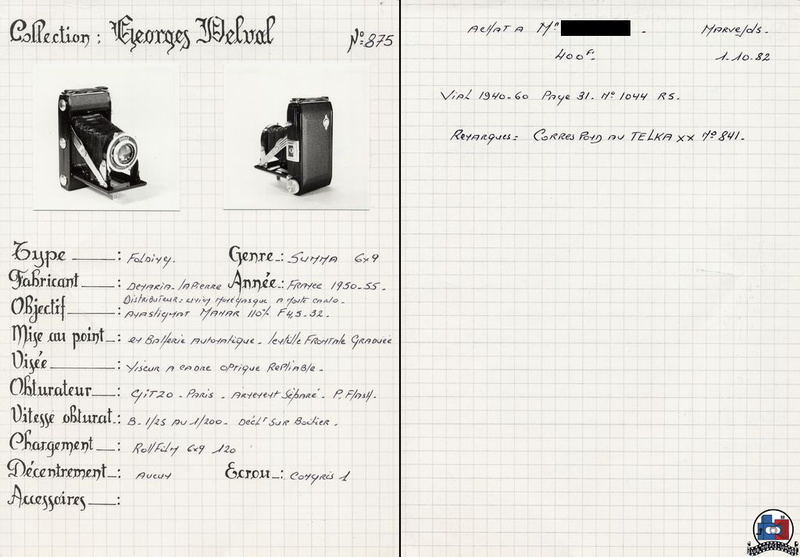 Collection : Georges Delval
N° 875
Type : Folding.
Genre : SUMMA 6x9
Fabricant : DEMARIA. LAPIERRE
Année : FRANCE 1950-55.
Distributeur: A MONTE CARLO.
Objectif : ANASTIGMAT MANAR 110% F4,5.32.
Mise au point : en Batterie AUTOMATIQUE. lentille FRONTALE GRADUÉE
Visée : Viseur A CADRE OPTIQUE REPLIABLE.
Obturateur : GITZO. PARIS. ARMEMENT SÉPARÉ. P. FLASH.
Vitesse obturat. : B. 1/25 AU 1/200. DÉCLT SUR BOITIER.
Chargement : Rollfilm 6x9 120
Décentrement : AUCUN
Ecrou : CONGRÈS 1
Accessoires :
ACHAT A Mr . MARVEJOLS.
400F. 1.10.82
VIAL 1940-60 Page 31. N° 1044 RS.
REMARQUES: CORRESPOND AU TELKA XX N° 841.